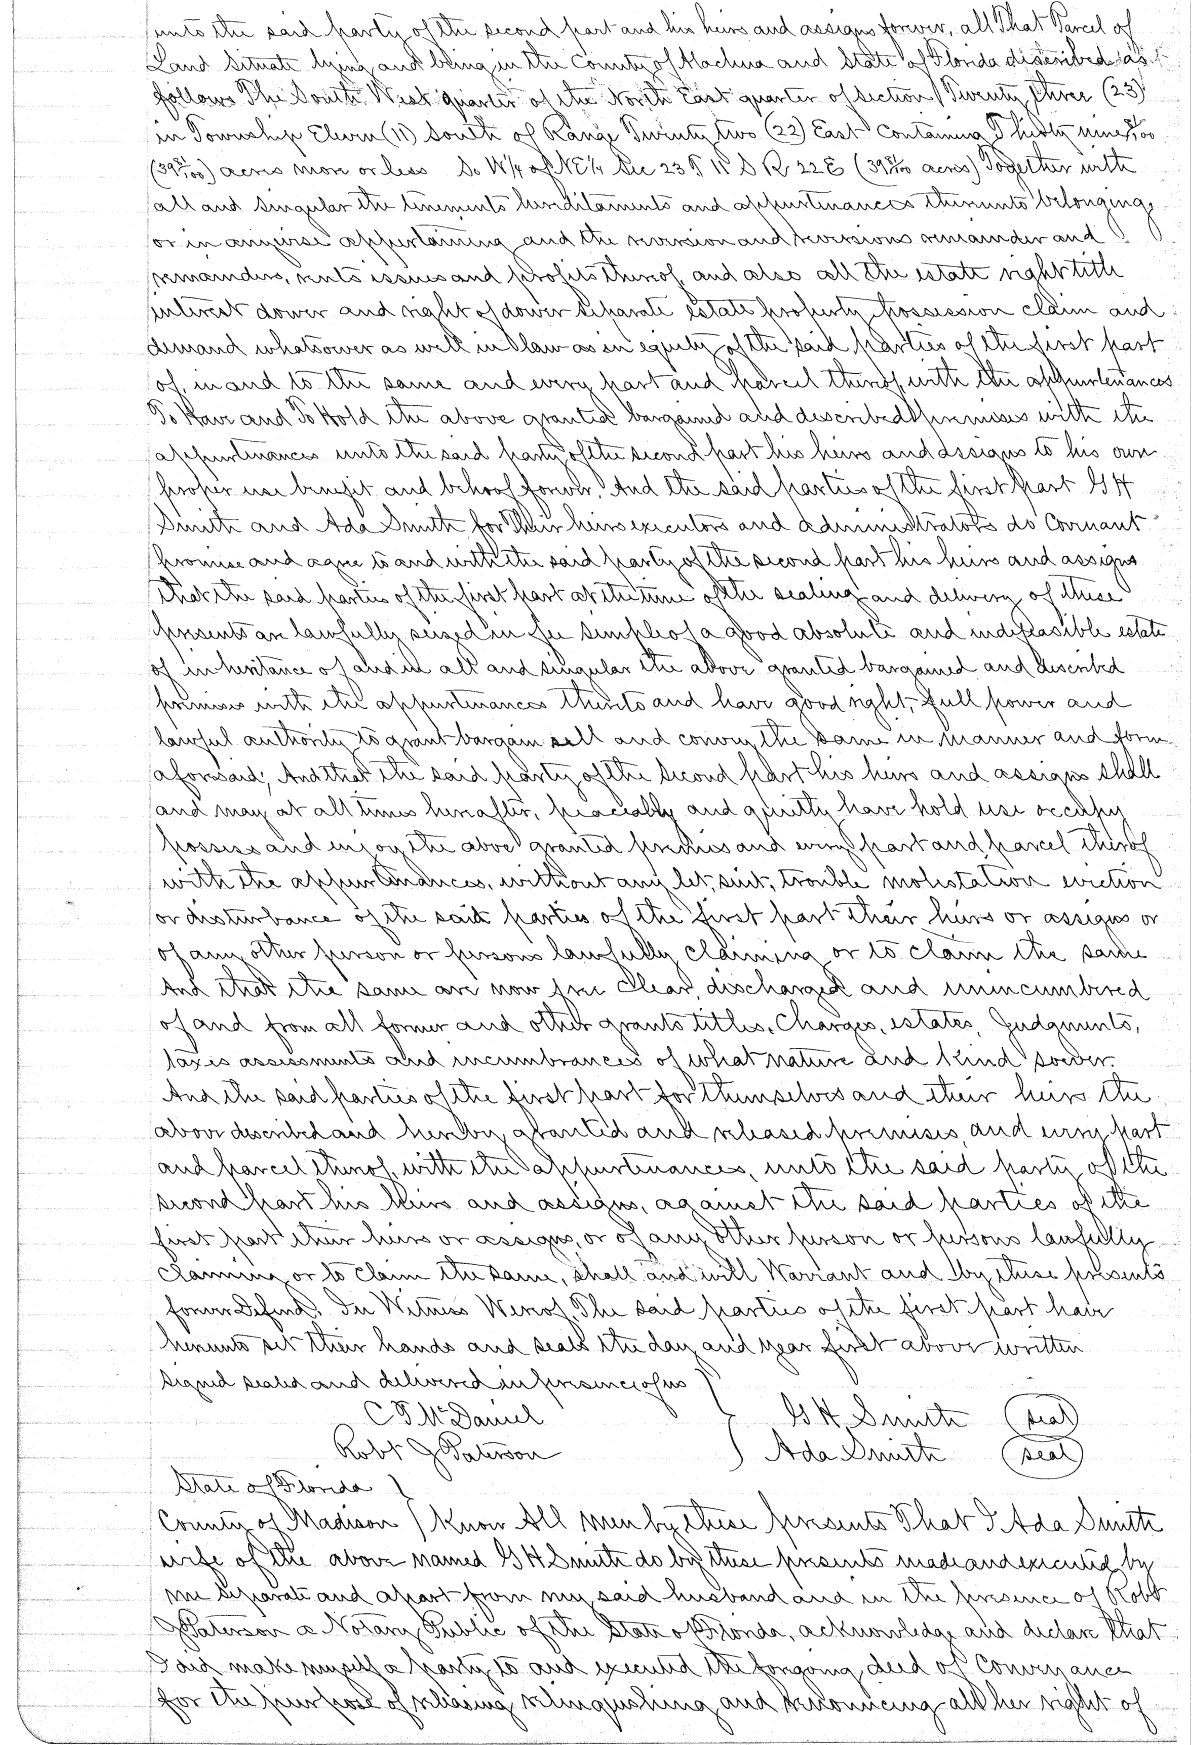 unto the said party of the second part and his heirs and assigns forever, all That Parcel of
Land Situate lying and being in the County of Alachua and State of Florida discribed as
follows The South West quarter of the North East quarter of section Twenty three (23)
in Township Eleven (11) South of Range Twenty two (22) East Containing Thirty nine
acres more or less So W¼ of NE¼ Sec 23 T 11 S R 22 E (39 acres) Together with
all and singular the tenements hereditaments and appurtenances thereunto belonging,
or in anywise appertaining and the reversion and reversions remainder and
remainders, rents issues and profits thereof, and also all the estate right title
interest dower and right of dower separate estate property possession claim and
demand whatsoever as well in law as in equity of the said parties of the first part
of, in and to the same and every part and parcel thereof with the appurtenances
To Have and To Hold the above granted bargained and described premises with the
appurtenances unto the said party of the second part his heirs and assigns to his own
proper use benefit and behoof forever. And the said parties of the first part G H
Smith and Ada Smith for Their heirs executors and administrators do Covenant
promise and agree to and with the said party of the second part his heirs and assigns
that the said parties of the first part at the time of the sealing and delivery of these
presents are lawfully seized in fee simple of a good absolute and indefeasible estate
of inheritance of and in all and singular the above granted bargained and described
premises with the appurtenances thereto and have good right, full power and
lawful authority to grant bargain sell and convey the same in manner and form
aforesaid; And that the said party of the second part his heirs and assigns shall
and may at all times hereafter, peaceably and quietly have hold use occupy
possess and enjoy the above granted premises and every part and parcel thereof
with the appurtenances, without any let, suit, trouble molestation eviction
or disturbance of the said parties of the first part their heirs or assigns or
of any other person or persons lawfully claiming or to claim the same
And that the same are now free Clear, discharged and unincumbered
of and from all former and other grants titles, Charges, estates, Judgments,
taxes assessments and incumbrances of what nature and kind soever.
And the said parties of the first part for themselves and their heirs the
above described and hereby granted and released premises, and every part
and parcel thereof, with the appurtenances, unto the said party of the
second part his heirs and assigns, against the said parties of the
first part their heirs or assigns, or of any other person or persons lawfully
claiming or to claim the same, shall and will Warrant and by these presents
forever Defend. In Witness Wereof, The said parties of the first part have
hereunto set their hands and seals the day and year first above written
Signed sealed and delivered in presence of us
C T McDaniel G H Smith (seal)
Robt J Paterson Ada Smith (seal)
State of Florida
County of Madison Know All Men by these presents That I Ada Smith
wife of the above named G H Smith do by these presents made and executed by
me separate and apart from my said husband and in the presence of Robt
J Paterson a Notary Public of the State of Florida, acknowledge and declare that
I did make myself a party to and executed the forgoing deed of Conveyance
for the purpose of releasing relinquishing and renouncing all her right of